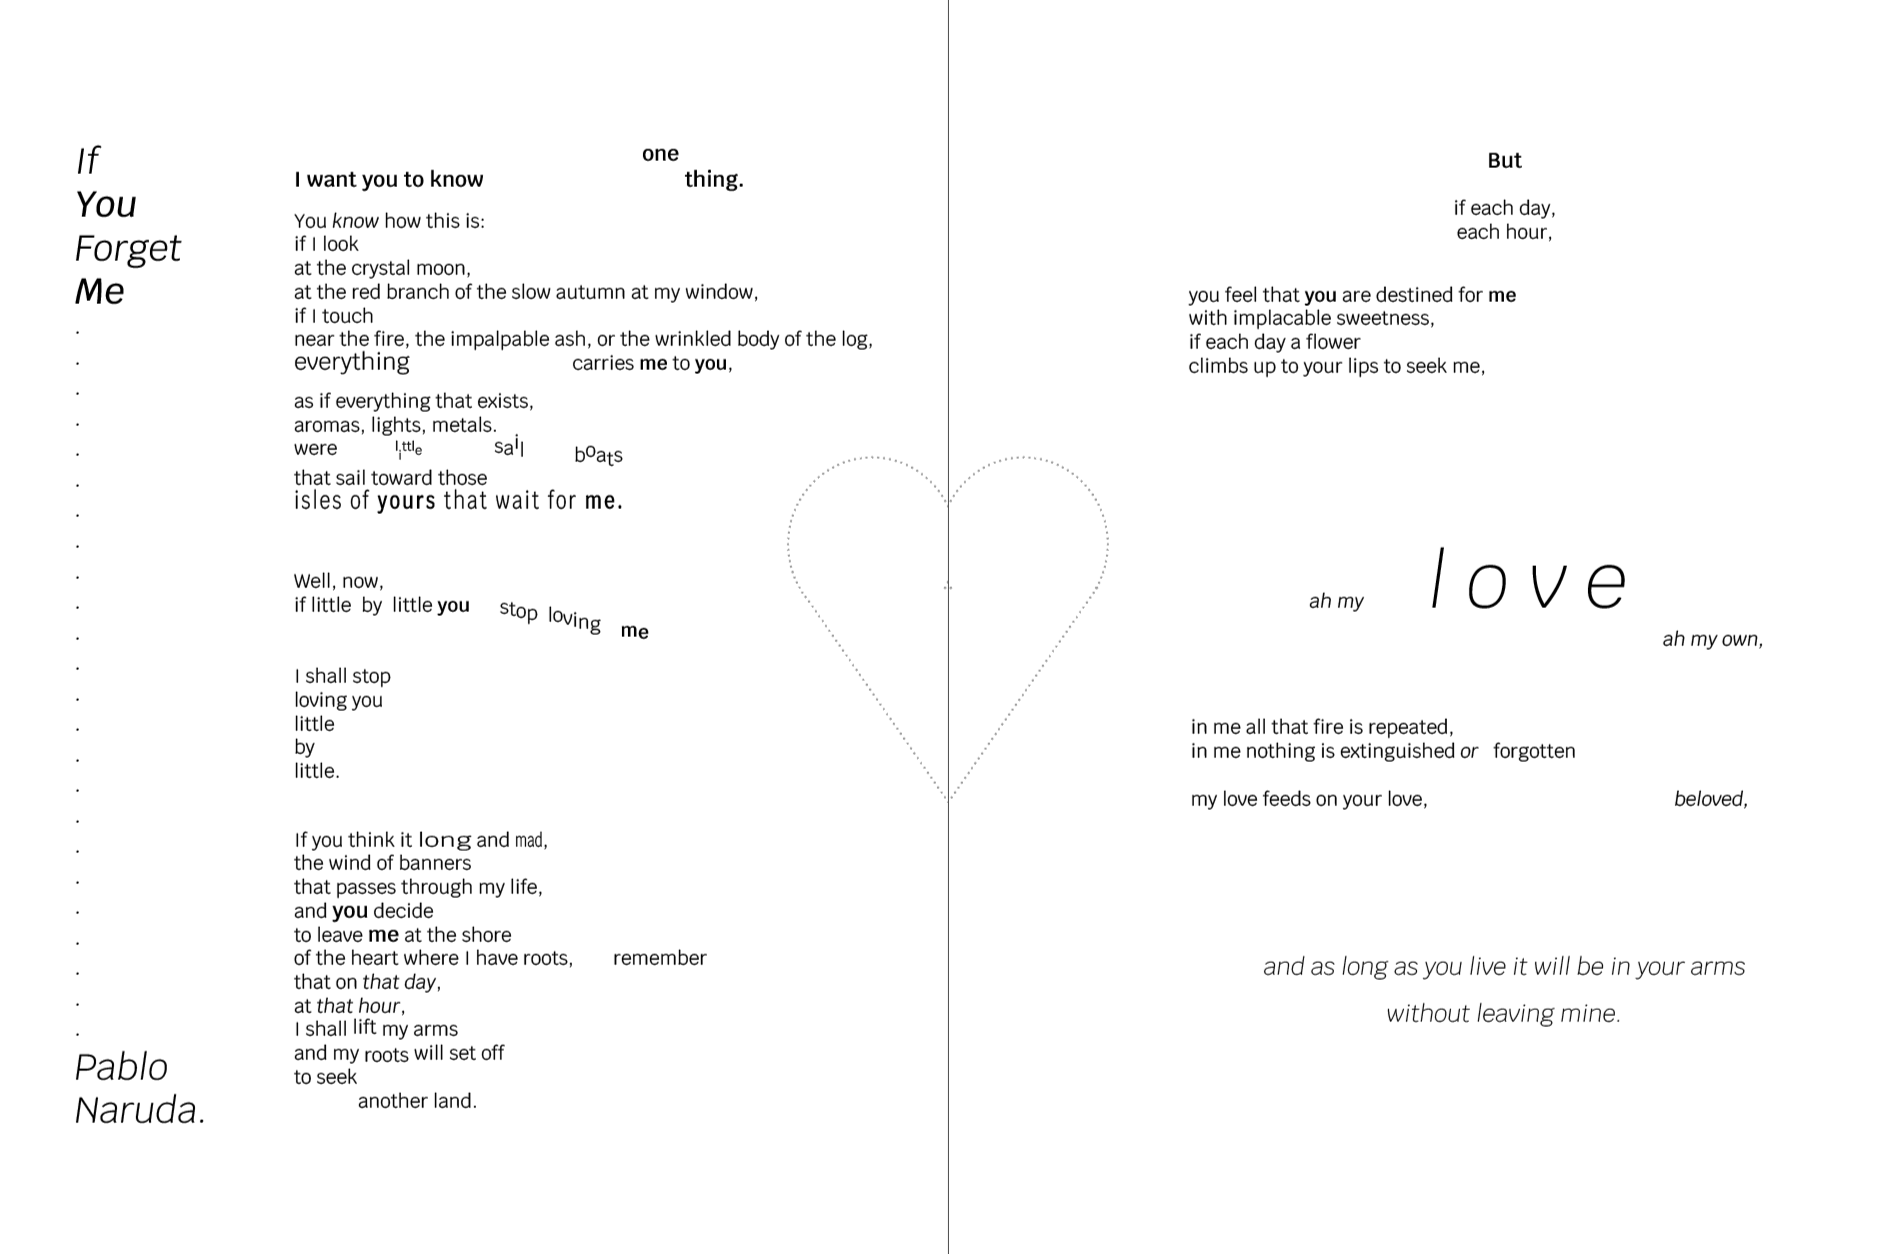 If
You
Forget
Me
Pablo
Naruda.
I want you to know one thing.
You know how this is:
if I look
at the crystal moon,
at the red branch of the slow autumn at my window,
if I touch
near the fire, the impalpable ash, or the wrinkled body of the log,
everything carries me to you,
as if everything that exists,
aromas, lights, metals.
were little sail boats
that sail toward those
isles of yours that wait for me.
Well, now,
if little by little you stop loving me
I shall stop
loving you
little
by
little.
If you think it long and mad,
the wind of banners
that passes through my life,
and you decide
to leave me at the shore
of the heart where I have roots, remember
that on that day,
at that hour,
I shall lift my arms
and my roots will set off
to seek
another land.
But
if each day,
each hour,
you feel that you are destined for me
with implacable sweetness,
if each day a flower
climbs up to your lips to seek me,
ah my love
ah my own,
in me all that fire is repeated,
in me nothing is extinguished or forgotten
my love feeds on your love, beloved,
and as long as you live it will be in your arms
without leaving mine.